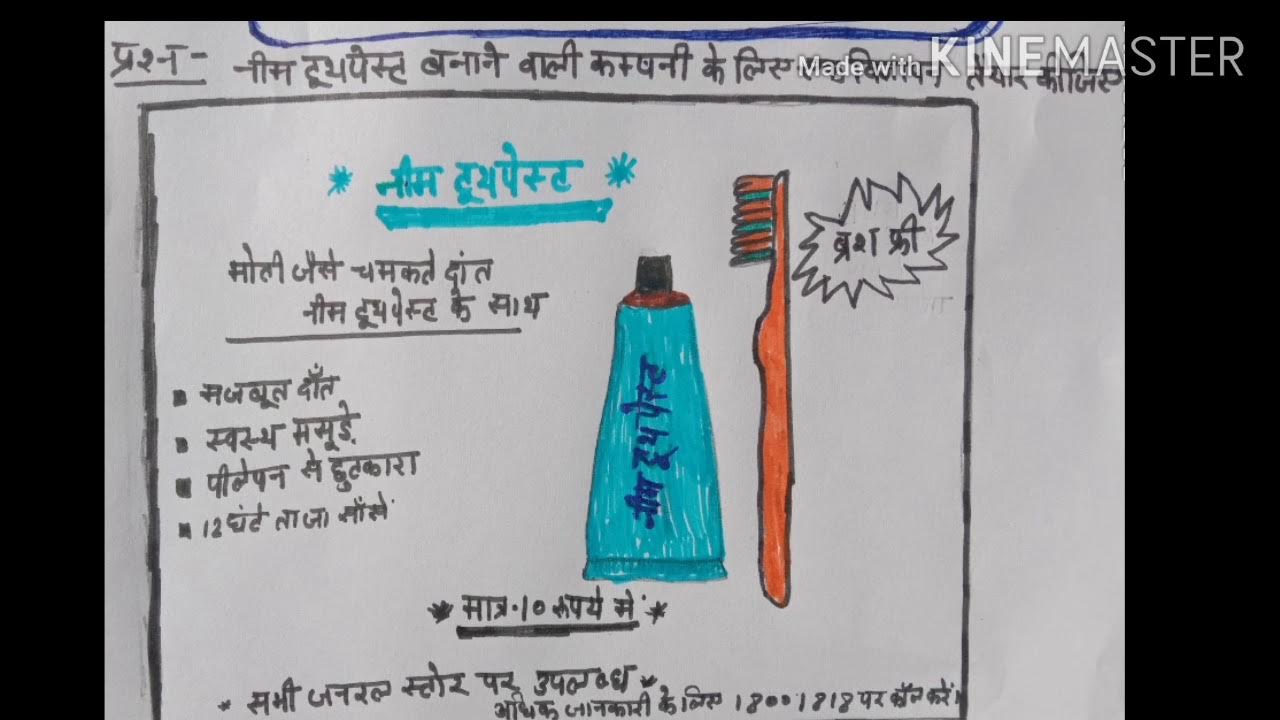 प्रश्न - नीम टूथपेस्ट बनाने वाली कम्पनी के लिए तैयार कीजिए
Made with KINEMASTER
* नीम टूथपेस्ट *
मोती जैसे चमकते दांत
नीम टूथपेस्ट के साथ
ब्रश फ्री
▪ मजबूत दाँत
▪ स्वस्थ मसूड़े
▪ पीलेपन से छुटकारा
▪ 12 घंटे ताजा साँसें
नीम टूथ पेस्ट
* मात्र 10 रुपये में *
* सभी जनरल स्टोर पर उपलब्ध *
अधिक जानकारी के लिए 18001818 पर कॉल करें।